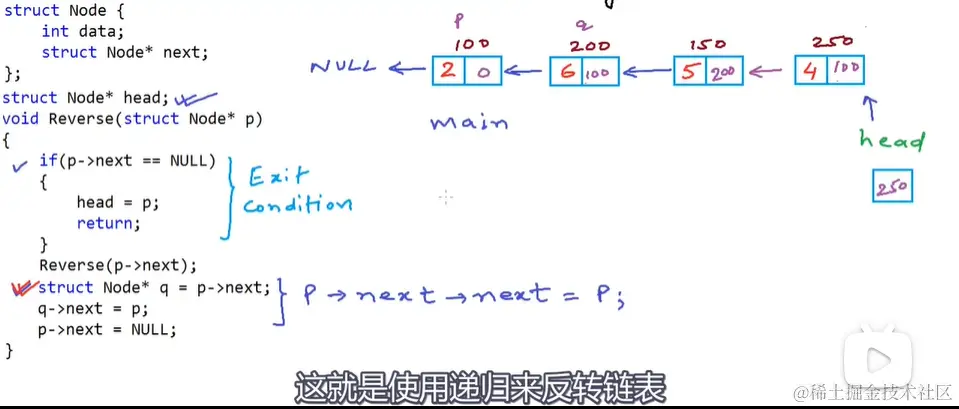 struct Node {
int data;
struct Node* next;
};
struct Node* head;
void Reverse(struct Node* p)
{
if(p->next == NULL)
{
head = p;
return;
}
Reverse(p->next);
struct Node* q = p->next;
q->next = p;
p->next = NULL;
}
Exit
Condition
P→next→next = P;
P q
100 200 150 250
NULL ← 2 0 ← 6 100 ← 5 200 ← 4 100
main
head
250
这就是使用递归来反转链表
@稀土掘金技术社区